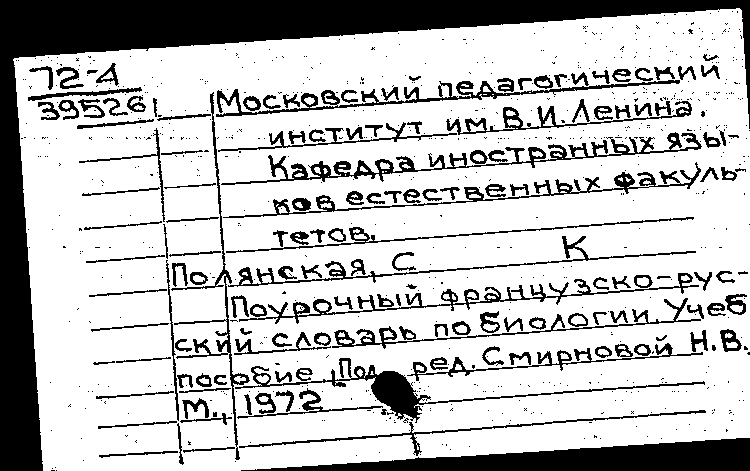 72-4
39526
Московский педагогический
институт им. В.И. Ленина.
Кафедра иностранных язы-
ков естественных факуль-
тетов.
Полянская, С К
Поурочный французско-рус-
ский словарь по биологии. Учеб
пособие [Под ред. Смирновой Н.В.
М., 1972